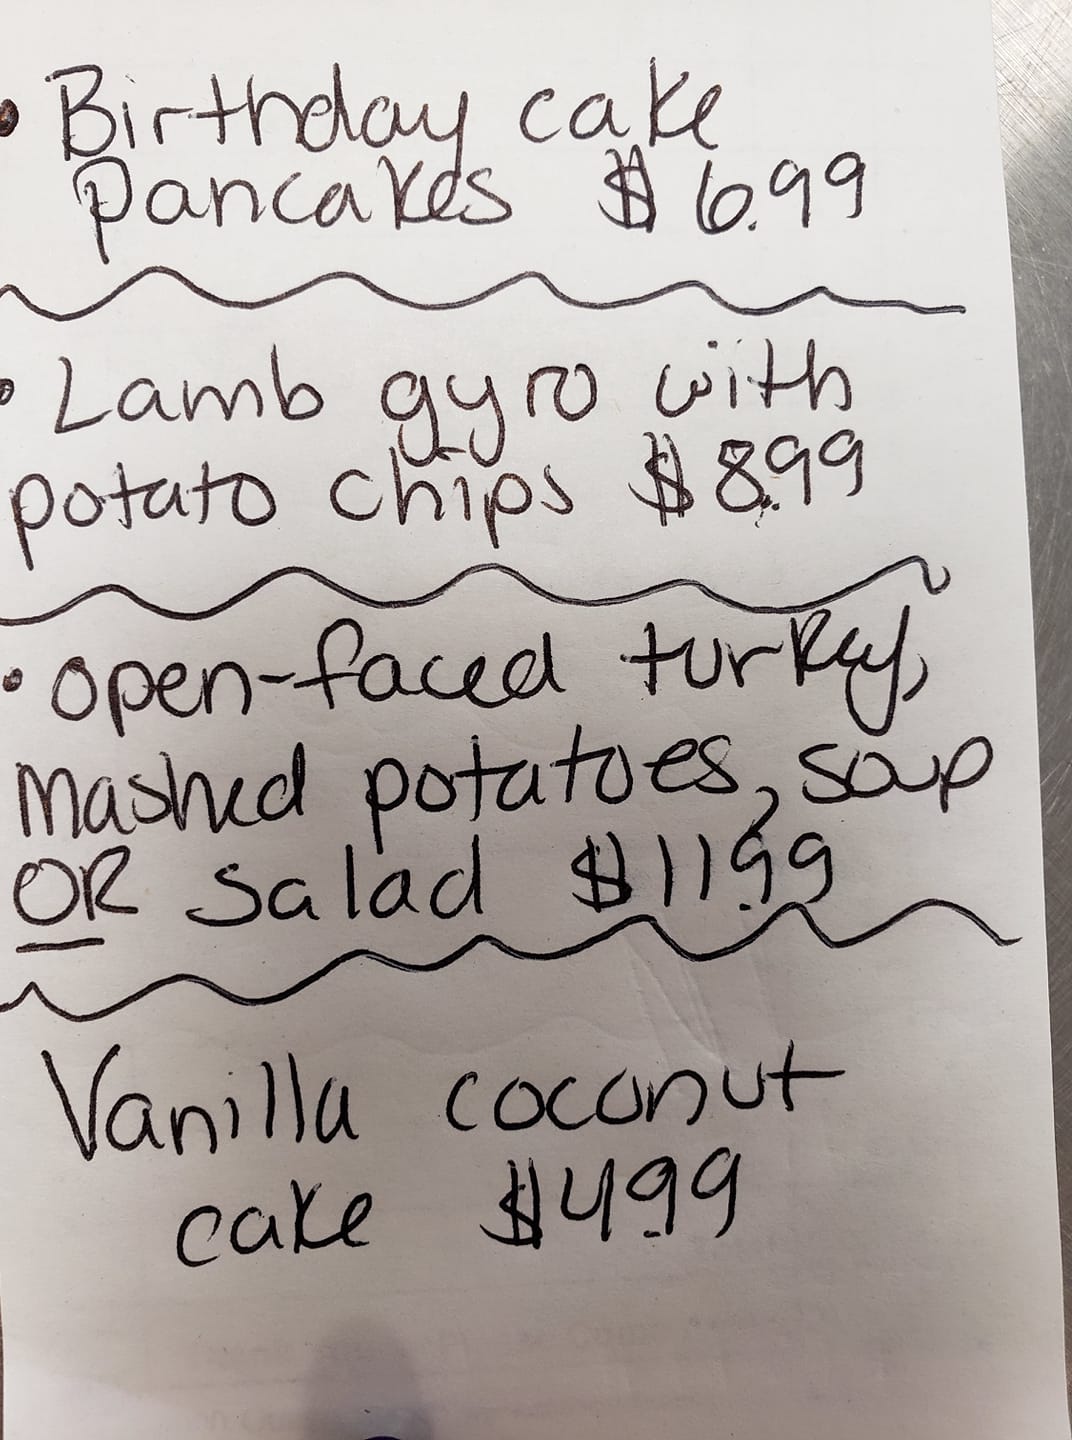 • Birthday cake
Pancakes $6.99
• Lamb gyro with
potato chips $8.99
• open-faced turkey,
Mashed potatoes, soup
OR salad $11.99
Vanilla coconut
cake $4.99